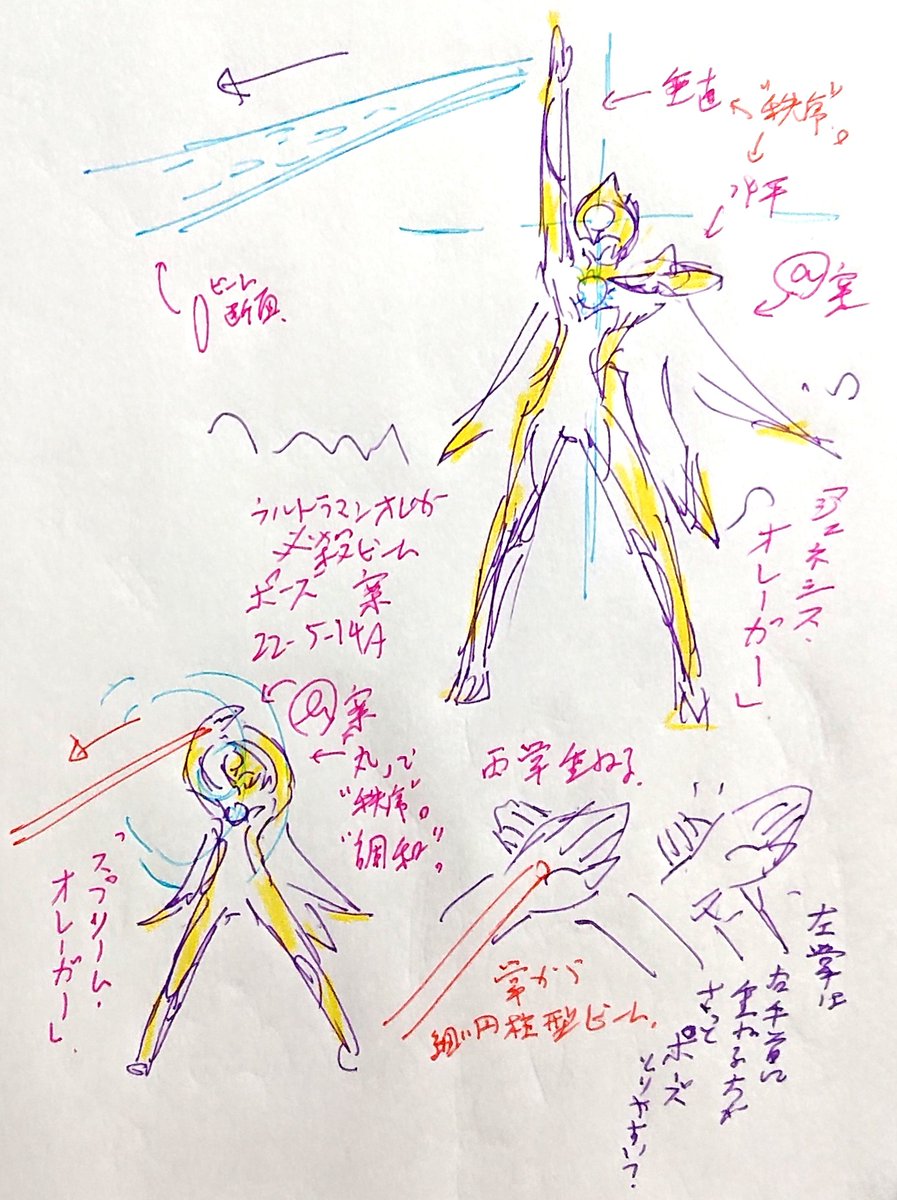 垂直
"秩序"。
水平
ビーム
断面
案
「ジェネシス・
オレーガー」
ウルトラマンオレガ
必殺ビーム
ポーズ 案
22-5-14A
案
丸,で
"秩序"。
"調和"。
「スプリーム・
オレーガー」
両掌重ねる。
掌から
細い円柱型ビーム。
左掌は
右手首に
重ねる方が
さっと
ポーズ
とりやすい?